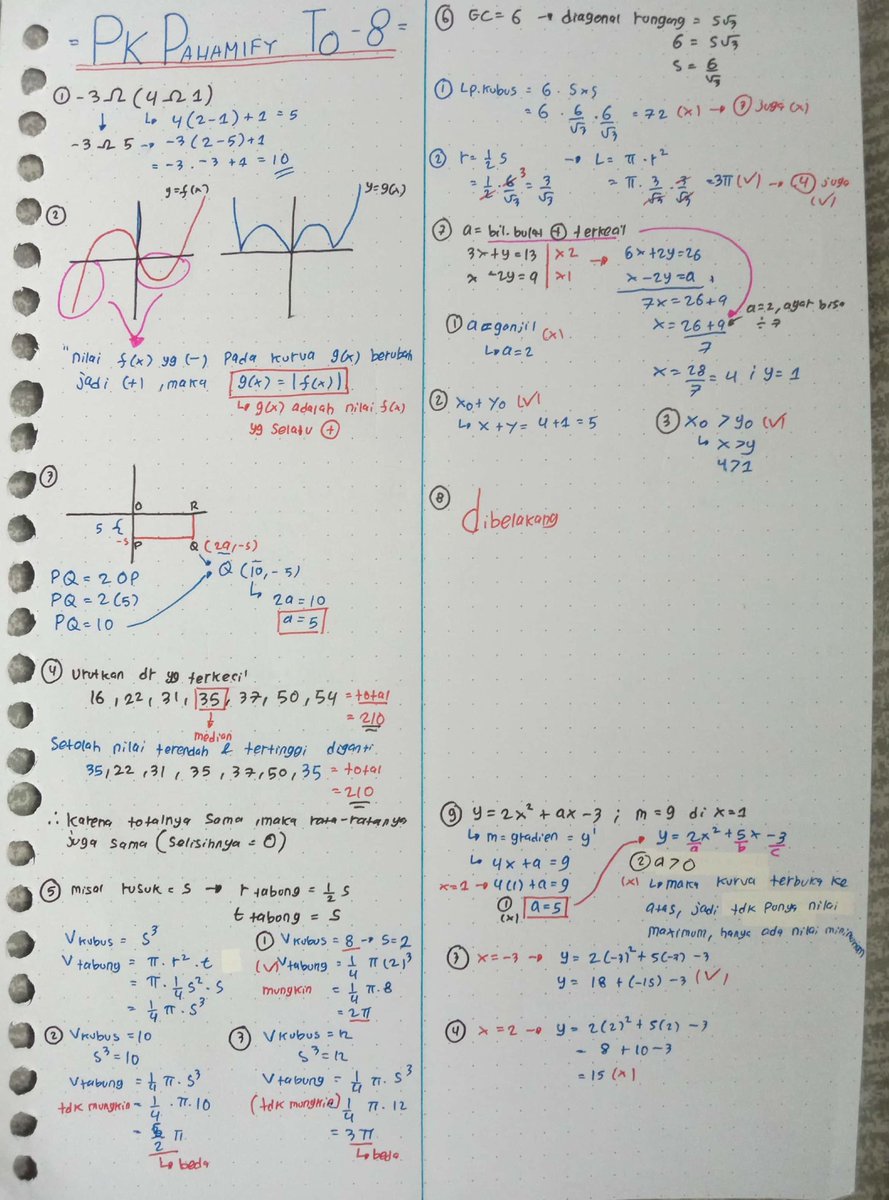 = PK PAHAMIFY TO - 8 =
① -3 Ω (4 Ω 1)
↳ 4(2-1)+1 = 5
-3 Ω 5 → -3(2-5)+1
= -3 . -3 + 1 = 10
②
y=f(x)
y=g(x)
"nilai f(x) yg (-) pada kurva g(x) berubah
jadi (+), maka g(x) = |f(x)|
↳ g(x) adalah nilai f(x)
yg selalu ⊕
③
O R
5 { -5 P Q (2a,-5)
PQ = 2 OP
Q (10,-5)
PQ = 2(5)
↳ 2a = 10
PQ = 10
a = 5
④ Urutkan dr yg terkecil
16, 22, 31, 35, 37, 50, 54 = total
= 210
median
Setelah nilai terendah & tertinggi diganti
35, 22, 31, 35, 37, 50, 35 = total
= 210
∴ karena totalnya sama, maka rata-ratanya
juga sama (selisihnya = 0)
⑤ misal rusuk = s → r tabung = 1/2 s
t tabung = s
V kubus = s³
V tabung = π . r² . t
= π . 1/4 s² . s
= 1/4 π . s³
① V kubus = 8 → s = 2
(√) V tabung = 1/4 π (2)³
mungkin = 1/4 π . 8
= 2π
② V kubus = 10
s³ = 10
V tabung = 1/4 π . s³
tdk mungkin = 1/4 . π . 10
= 5/2 π
↳ beda
③ V kubus = 12
s³ = 12
V tabung = 1/4 π . s³
(tdk mungkin) = 1/4 π . 12
= 3π
↳ beda
⑥ GC = 6 → diagonal ruang = s√3
6 = s√3
s = 6/√3
① Lp. kubus = 6 . s x s
= 6 . 6/√3 . 6/√3 = 72 (x) → ③ juga (x)
② r = 1/2 s → L = π . r²
= 1/2 . 6/√3 = 3/√3 = π . 3/√3 . 3/√3 = 3π (√) → ④ juga (√)
⑦ a = bil. bulat ⊕ terkecil
3x+y=13 | x2 → 6x+2y=26
x-2y=a | x1 x-2y=a +
7x = 26+a
x = 26+a / 7
a=2, agar bisa ÷ 7
x = 28/7 = 4 ; y = 1
① a = ganjil (x)
↳ a=2
② x₀ + y₀ (√)
↳ x + y = 4+1 = 5
③ x₀ > y₀ (√)
↳ x > y
4 > 1
⑧
dibelakang
⑨ y = 2x² + ax - 3 ; m = 9 di x=1
↳ m = gradien = y'
↳ 4x + a = 9
x=1 → 4(1) + a = 9
① (x) a = 5
y = 2x² + 5x - 3
a b c
② a > 0
(x) ↳ maka kurva terbuka ke
atas, jadi tdk punya nilai
maximum, hanya ada nilai minimum
③ x = -3 → y = 2(-3)² + 5(-3) - 3
y = 18 + (-15) - 3 (√)
④ x = 2 → y = 2(2)² + 5(2) - 3
= 8 + 10 - 3
= 15 (x)